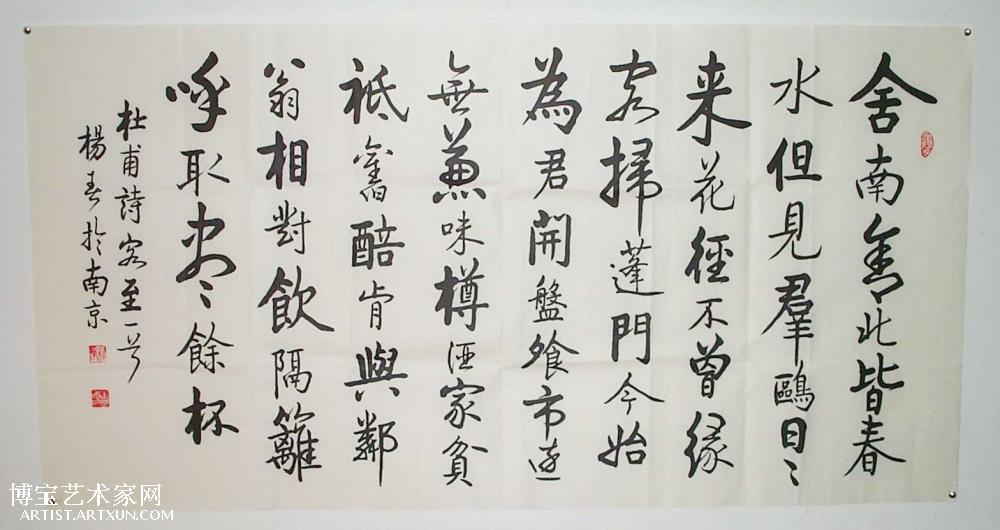 舍南舍北皆春
水但見羣鷗日〻
来花徑不曾緣
客掃蓬門今始
為君開盤飧市遠
無兼味樽酒家貧
祗舊醅肯與鄰
翁相對飲隔籬
呼取尽餘杯
杜甫詩客至一首
楊春於南京
博宝艺术家网
ARTIST.ARTXUN.COM